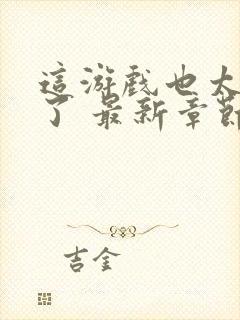 這游戲也太
了 最新章節
吉金